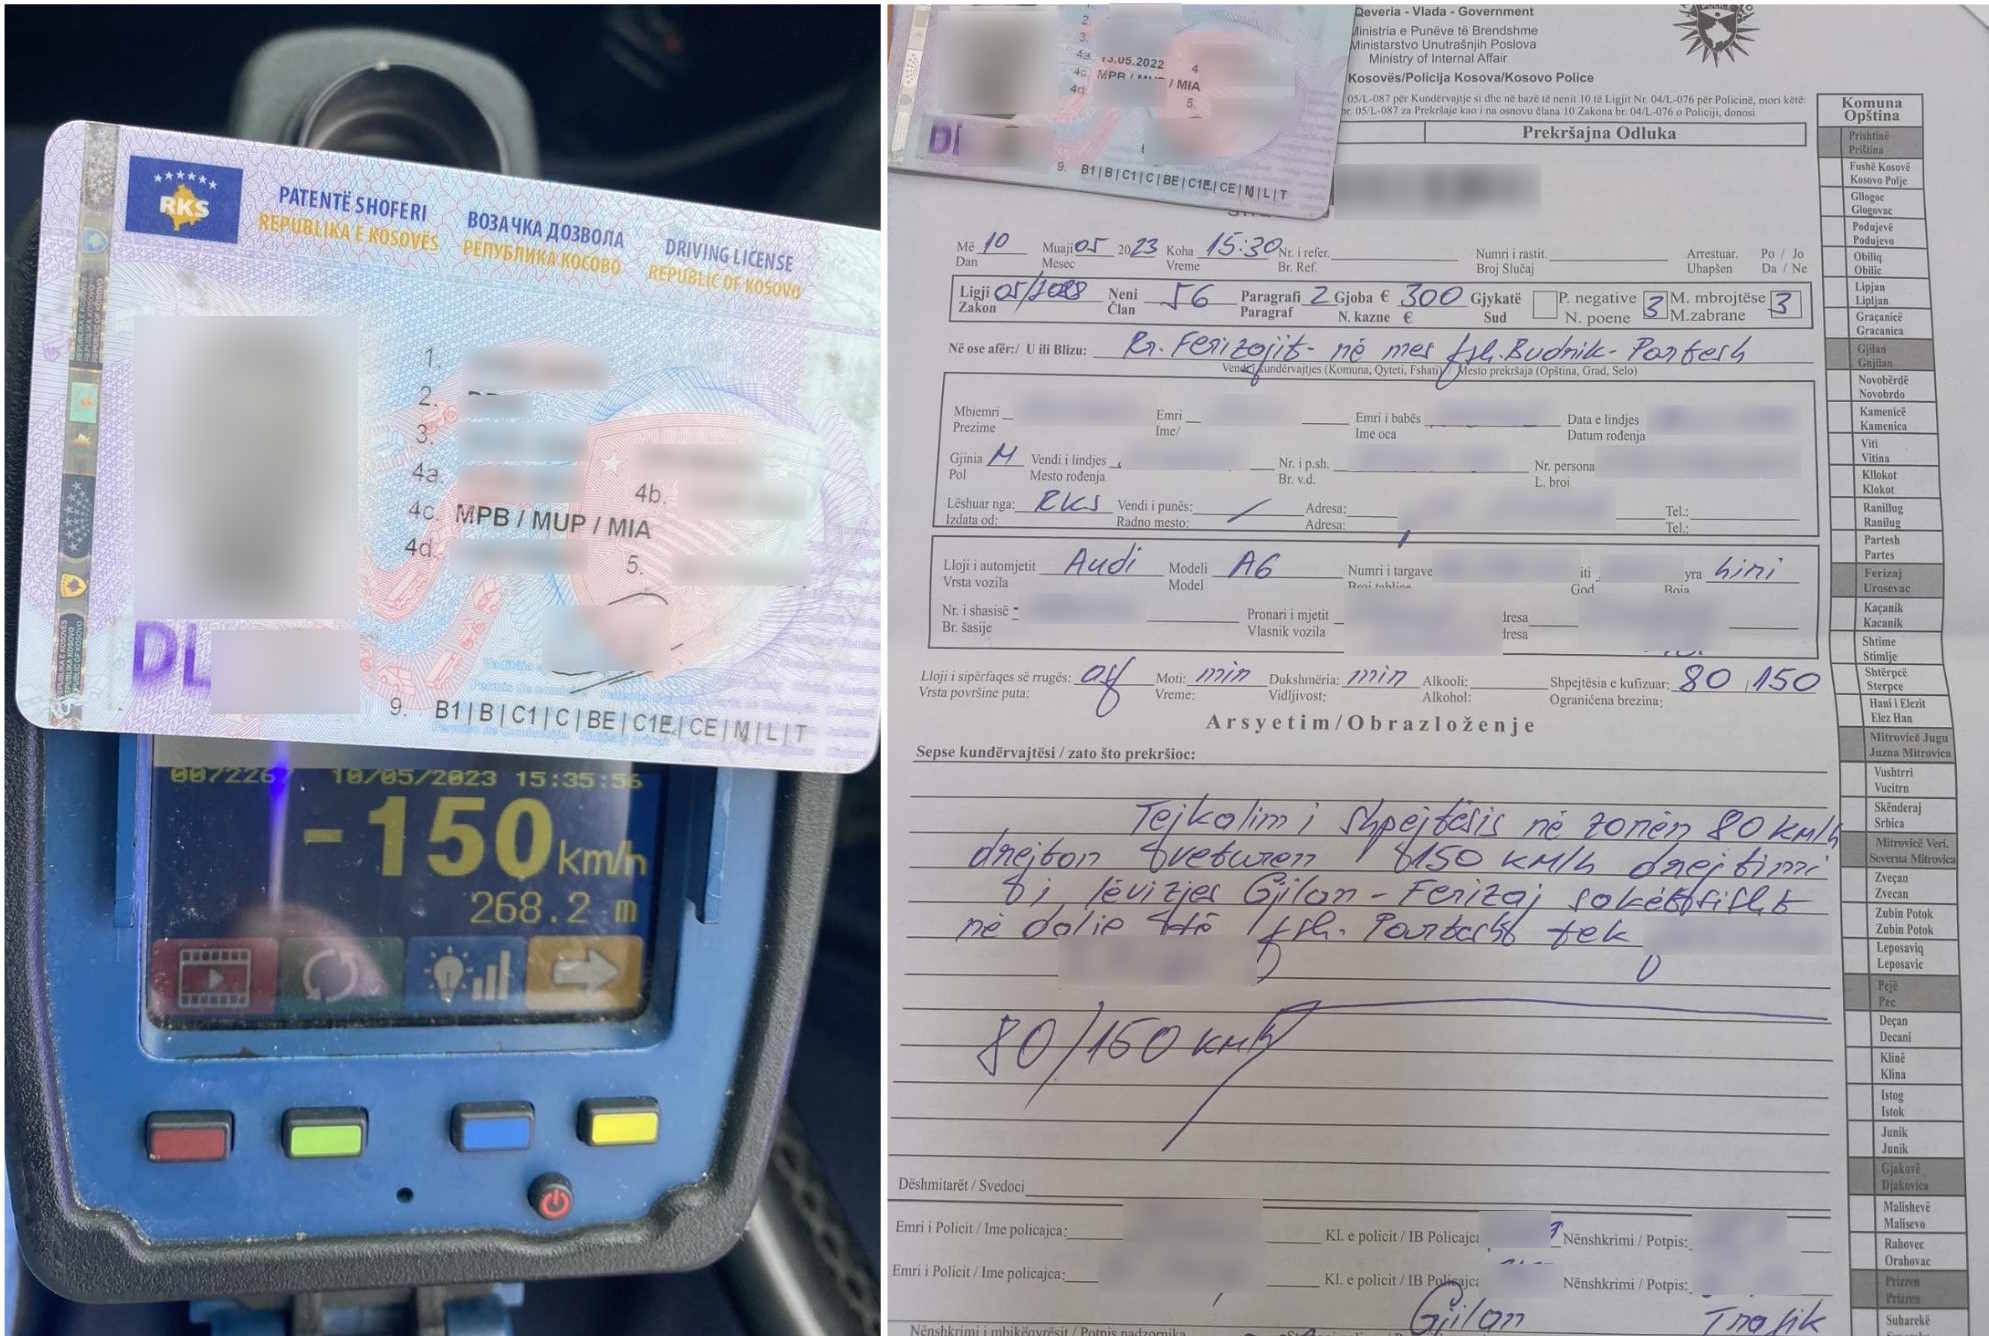 RKS
PATENTË SHOFERI ВОЗАЧКА ДОЗВОЛА DRIVING LICENSE
REPUBLIKA E KOSOVËS РЕПУБЛИКА КОСОВО REPUBLIC OF KOSOVO
1.
2.
3.
4a. 4b.
4c. MPB / MUP / MIA
4d. 5.
DL
9. B1 | B | C1 | C | BE | C1E | CE | M | L | T
10/05/2023 15:35:56
-150 km/h
268.2 m
2.
3.
4a. 13.05.2022 4
4c. MPB / / MIA
4d. 5.
9. B1 | B | C1 | C | BE | C1E | CE | M | L | T
Qeveria - Vlada - Government
Ministria e Punëve të Brendshme
Ministarstvo Unutrašnjih Poslova
Ministry of Internal Affair
Kosovës/Policija Kosova/Kosovo Police
05/L-087 për Kundërvajtje si dhe në bazë të nenit 10 të Ligjit Nr. 04/L-076 për Policinë, mori këtë:
br. 05/L-087 za Prekršaje kao i na osnovu člana 10 Zakona br. 04/L-076 o Policiji, donosi
Prekršajna Odluka
Më 10 Muaji 05 2023 Koha 15:30 Nr. i refer. Numri i rastit. Arrestuar. Po / Jo
Dan Mesec Vreme Br. Ref. Broj Slučaj Uhapšen Da / Ne
Ligji Neni 56 Paragrafi 2 Gjoba € 300 Gjykatë P. negative 3 M. mbrojtëse 3
Zakon Član Paragraf N. kazne € Sud N. poene M.zabrane
Në ose afër:/ U ili Blizu: Rr. Ferizajit - në mes fsh. Budrik - Partesh
Vendi i kundërvajtjes (Komuna, Qyteti, Fshati) / Mesto prekršaja (Opština, Grad, Selo)
Mbiemri Emri Emri i babës Data e lindjes
Prezime Ime/ Ime oca Datum rođenja
Gjinia M Vendi i lindjes Nr. i p.sh. Nr. persona
Pol Mesto rođenja Br. v.d. L. broi
Lëshuar nga: RKS Vendi i punës: / Adresa: Tel.:
Izdata od: Radno mesto: Adresa: Tel.:
Lloji i automjetit Audi Modeli A6 Numri i targave iti yra hini
Vrsta vozila Model God Boja
Nr. i shasisë Pronari i mjetit dresa
Br. šasije Vlasnik vozila dresa
Lloji i sipërfaqes së rrugës: asf Moti: min Dukshmëria: min Alkooli: Shpejtësia e kufizuar: 80, 150
Vrsta površine puta: Vreme: Vidljivost: Alkohol: Ograničena brezina:
Arsyetim/Obrazloženje
Sepse kundërvajtësi / zato što prekršioc:
Tejkalim i shpejtësis në zonën 80 km/h
drejton veturen 150 km/h drejtimi
i lëvizjes Gjilan - Ferizaj
në dalje fsh. Partesh tek
80/150 km/h
Dëshmitarët / Svedoci
Emri i Policit / Ime policajca: Kl. e policit / IB Policajca Nënshkrimi / Potpis:
Emri i Policit / Ime policajca: Kl. e policit / IB Policajca Nënshkrimi / Potpis:
Gjilan Trafik
Nënshkrimi i mbikëqyrësit / Potpis nadzornika
Komuna
Opština
Prishtinë
Priština
Fushë Kosovë
Kosovo Polje
Gllogoc
Glogovac
Podujevë
Podujevo
Obiliq
Obilic
Lipjan
Lipljan
Graçanicë
Gracanica
Gjilan
Gnjilan
Novobërdë
Novobrdo
Kamenicë
Kamenica
Viti
Vitina
Kllokot
Klokot
Ranillug
Ranilug
Partesh
Partes
Ferizaj
Urosevac
Kaçanik
Kacanik
Shtime
Stimlje
Shtërpcë
Sterpce
Hani i Elezit
Elez Han
Mitrovicë Jugu
Juzna Mitrovica
Vushtrri
Vucitrn
Skënderaj
Srbica
Mitrovicë Veri.
Severna Mitrovica
Zveçan
Zvecan
Zubin Potok
Zubin Potok
Leposaviq
Leposavic
Pejë
Pec
Deçan
Decani
Klinë
Klina
Istog
Istok
Junik
Junik
Gjakovë
Djakovica
Malishevë
Malisevo
Rahovec
Orahovac
Prizren
Prizren
Suharekë